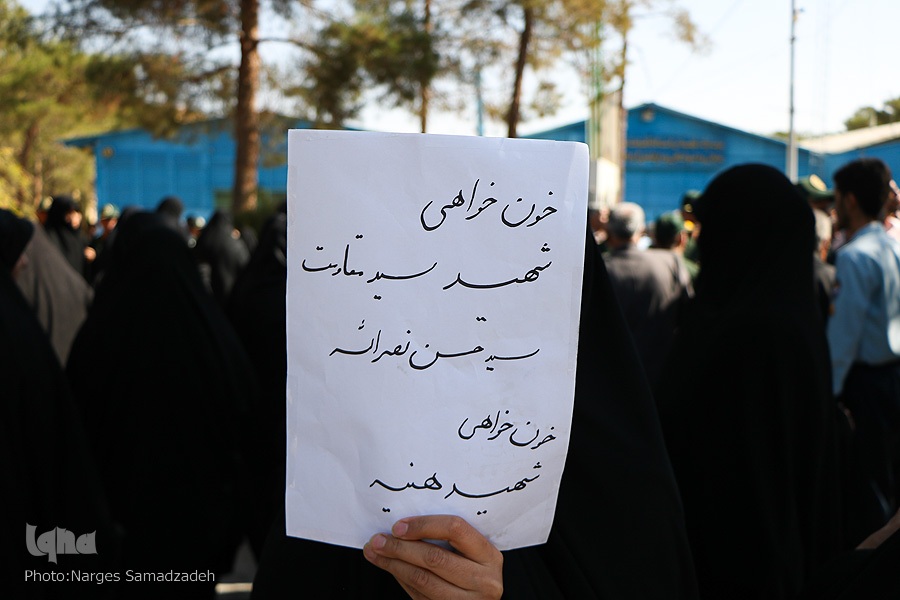 خون خواهی
شهید سید مقاومت
سید حسن نصرالله
خون خواهی
شهید هنیه
iqna
Photo:Narges Samadzadeh